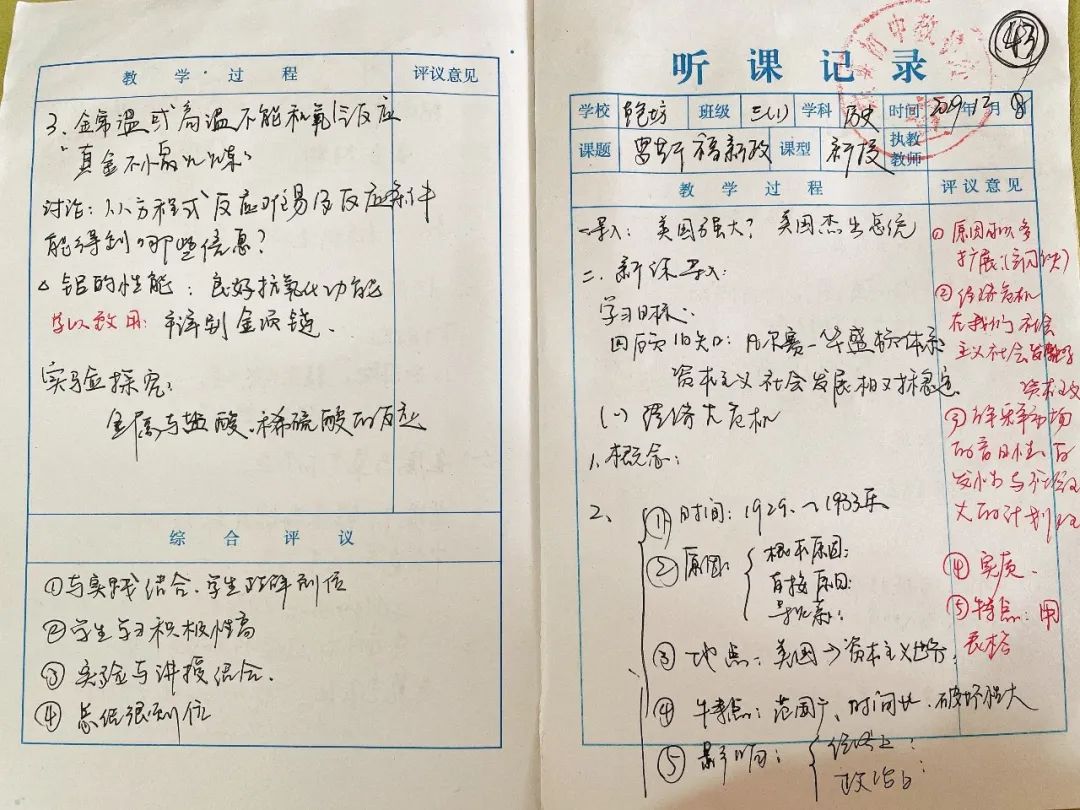 教 学 过 程 评议意见
3、金常温或高温不能和氧气反应
"真金不怕火炼"
讨论：从方程式反应难易及反应条件
能得到哪些信息？
△ 铝的性能：良好抗氧化功能
学以致用：辨别金项链.
实验探究：
金属与盐酸、稀硫酸的反应
综 合 评 议
①与实践结合，学生理解到位
②学生学习积极性高
③实验与讲授结合.
④总结很到位
43
听 课 记 录
学校 班级 三(1) 学科 历史 时间 2019年12月8
课题 罗斯福新政 课型 新授 执教教师
教 学 过 程 评议意见
一导入：美国强大？美国杰出总统
二、新课导入：
学习目标：
回顾旧知：凡尔赛—华盛顿体系
资本主义社会发展相对稳定
(一) 经济大危机
1、概念：
2、
①时间：1929.～1933年
②原因：
根本原因：
直接原因：
导火索：
③地点：美国→资本主义世界，
④特点：范围广、时间长.破坏性大
⑤影响：
经济上：
政治上：
①原因可以多
扩展
②经济危机
在我们社会
主义社会
资本主义
③
的盲目性、自
发性与
大的计划
④实质.
⑤特点：用
表格